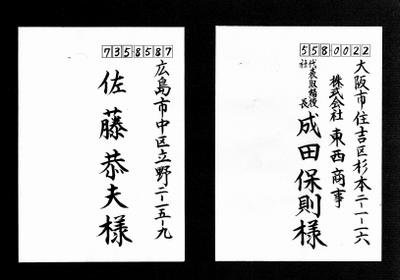 7358587
広島市中区立野二-一五-九
佐藤恭夫様
5580022
大阪市住吉区杉本二-一-一六
株式会社 東西商事
代表取締役
社長
成田保則様